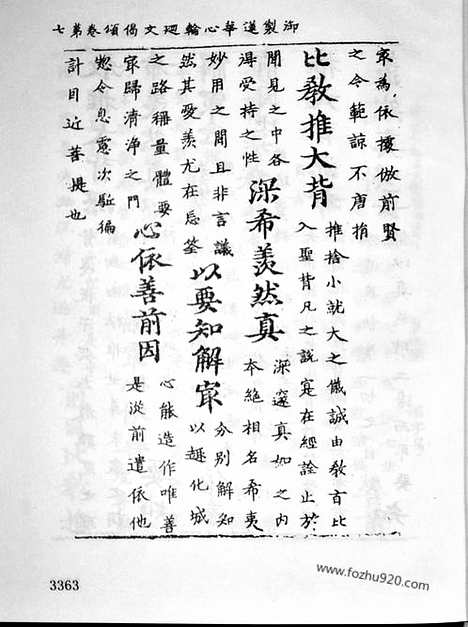 御製蓮華心輪廻文偈頌卷苐七
宗為依據倣前賢
之令範諒不唐捐
比教推大背
推捨小就大之儀誠由教旨比
入聖背凡之說寔在經詮止於
聞見之中各
淂受持之性
深希羨然真
深邃真如之內
本絕相名希夷
妙用之間且非言議
然其愛羨尤在忘筌
以要知解㝡
分別解知
以趣化城
之路稱量體要
㝡歸清淨之門
心依善前因
心能造作唯善
是從前遣依他
惣令息慮次徧
計目近菩提也
3363
www.fozhu920.com